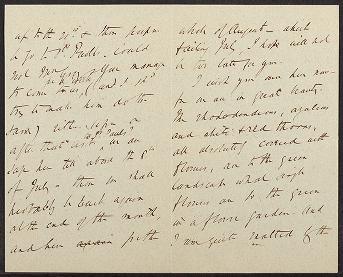 up to the 20th & then
to go to St Pauls. Could
not you & Gee manage
to come to us, (and I shd
try to make him do the
same) either before or
after that visit. We are
here till about the 8th
of July – then we shall
probably be back again
at the end of the month,
and here with
whole of August – which
failing July, I hope will not
be too late for you.
I wish you were here now –
for we are in great beauty.
The rhododendrons, azaleas
and white & red thorns,
all absolutely covered with
flowers, and to the green
landscape what high
flowers are to the green
in a flower garden. And
I am quite by the